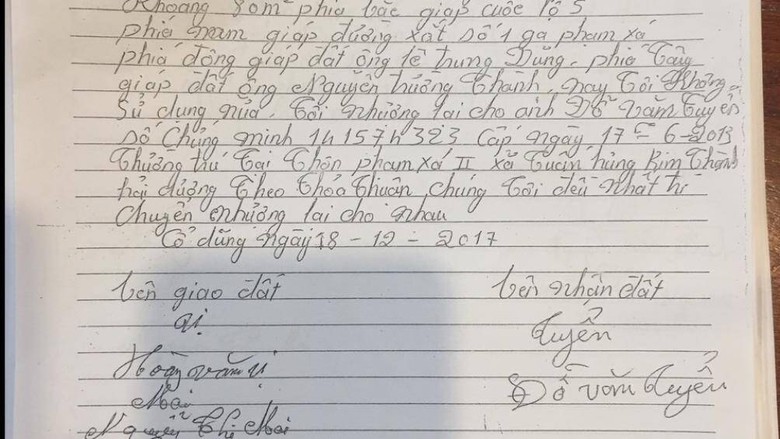 Khoảng 80m² phía bắc giáp cuốc lộ 5
phía nam giáp đường xắt số 1 ga phạm xá
phía đông giáp đất ông lê trung Dũng. phía Tây
giáp đất ông Nguyễn trường Thành, nay Tôi Không
Sử dụng nữa. Tôi nhượng lại cho anh Đỗ văm tuyển
số Chứng minh 141574323 Cấp ngày 17 - 6 - 2013
Thường trú Tại Thôn phạm xá II xã Tuấn hưng Kim Thành
hải dương Theo Thỏa Thuận chúng Tôi đều nhất trí
Chuyển nhượng lại cho nhau
Cổ dũng ngày 18 - 12 - 2017
bên giao đất
bên nhận đất
vị
tuyển
Hoàng văn vị
Đỗ văm tuyển
Mai
Nguyễn Thị Mai